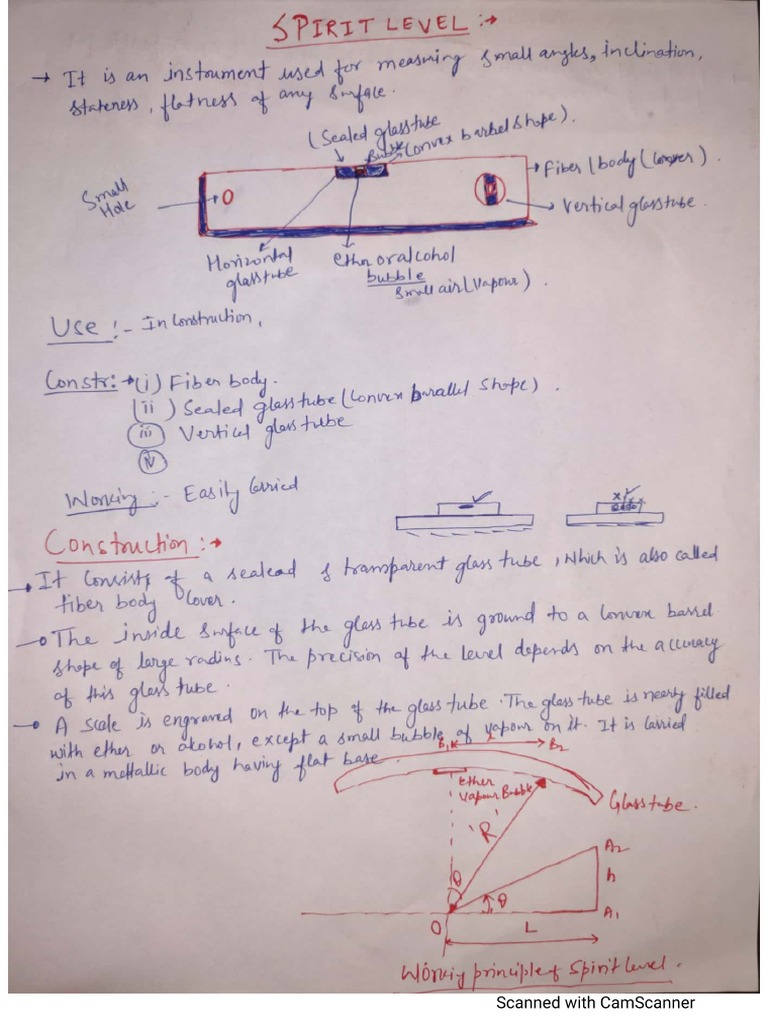 SPIRIT LEVEL :→
→ It is an instrument used for measuring small angles, inclination,
stateness, flatness of any surface.
(Sealed glass tube
Bubble (Convex barbel shape).
→ Fiber / body (Conver).
Small
Hole
→ Vertical glass tube.
Horizontal
glass tube
ether or alcohol
bubble
small air (Vapour).
Use :- In Construction,
Constr: → (i) Fiber body.
(ii) Sealed glass tube (Convex parallel shape).
(iii) Vertical glass tube
(iv)
Working :- Easily Carried
Construction :→
→ It Consists of a sealead & transparent glass tube, Which is also called
fiber body Cover.
→ The inside surface of the glass tube is ground to a convex barrel
shape of large radius. The precision of the level depends on the accuracy
of this glass tube.
→ A scale is engraved on the top of the glass tube. The glass tube is nearly filled
with ether or alcohol, except a small bubble of vapour on it. It is Carried
in a mettallic body having flat base
B1 B2
Ether
Vapour Bubble
Glass tube.
'R'
A2
θ
h
θ
A1
O
L
Working principle of Spirit level.
Scanned with CamScanner